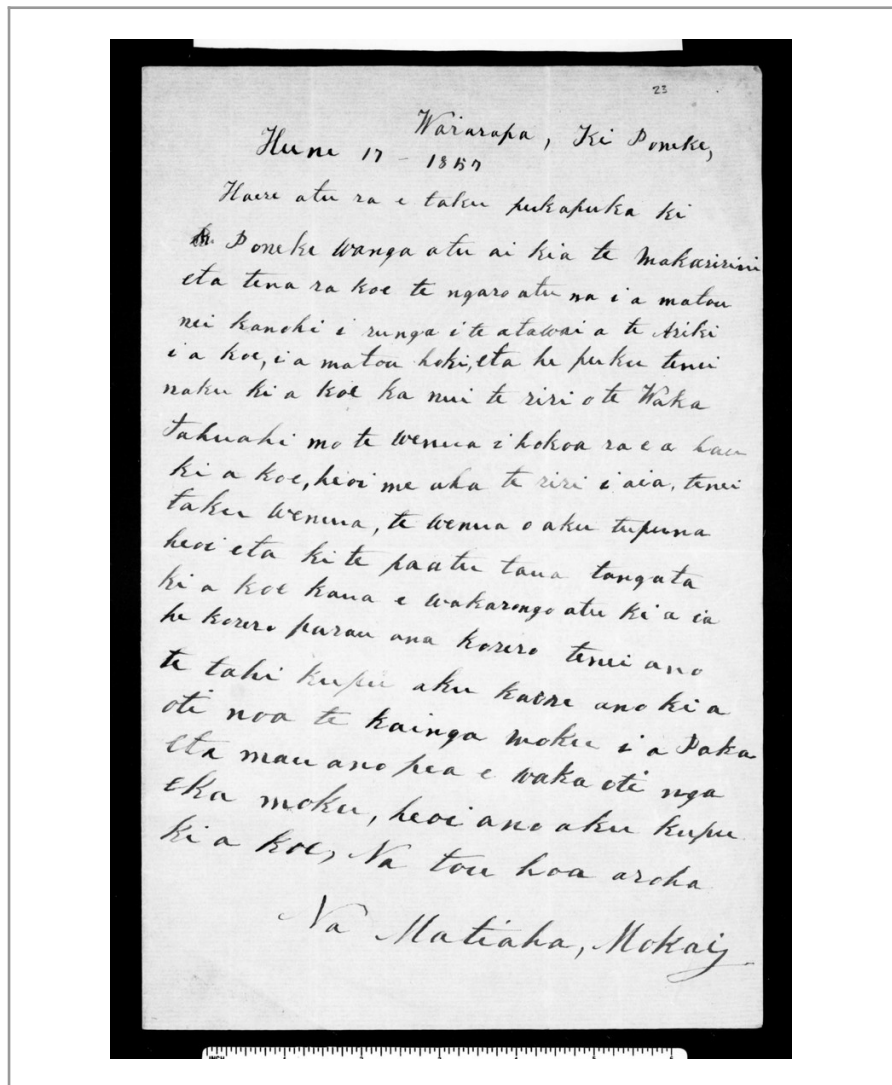 23
Wairarapa, Ki Poneke,
Hune 17 - 1857
Haere atu ra e taku pukapuka ki
Poneke wanga atu ai kia te Makaririni
eta tena ra koe te ngaro atu na i a matou
nei kanohi i runga i te atawai a te Ariki
i a koe, i a matou hoki, eta he puku tenei
naku ki a koe ka nui te riri o te Waka
tahuahi mo te wenua i hokoa ra e a hau
ki a koe, heoi me aha te riri i aia, tenei
taku wenua, te wenua o aku tupuna
heoi eta ki te paatu taua tangata
ki a koe kaua e wakarongo atu ki a ia
he korero parau ana korero tenei ano
te tahi kupu aku kaore ano ki a
oti noa te kainga moku i a Paka
eta mau ano pea e waka oti nga
eka moku, heoi ano aku kupu
ki a koe, Na tou hoa aroha
Na Matiaha, Mokai